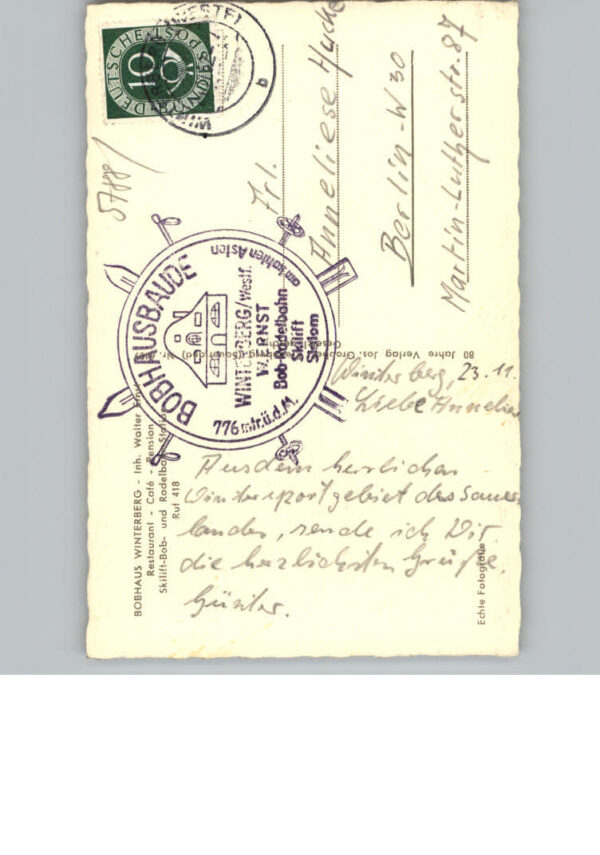 DEUTSCHE POST
10
(WESTF)
b
5788
Frl.
Anneliese
Berlin-W 30
Martin-Lutherstr. 87
BOBHAUSBAUDE
am kahlen Asten
WINTERBERG/Westf.
W. ERNST
Bob-Rodelbahn
Skilift
Slalom
776 mtr. ü. d. M.
80 Jahre Verlag Jos. Grobbel
BOBHAUS WINTERBERG - Inh. Walter Ernst
Restaurant - Café - Pension
Skilift-Bob- und Rodelbahn
Ruf 418
Echte Fotografie
Winterberg, 23.11.
Liebe Annelie
Aus dem herrlichen
Wintersportgebiet des Sauer-
landes, sende ich Dir
die herzlichsten Grüße.
Günter.